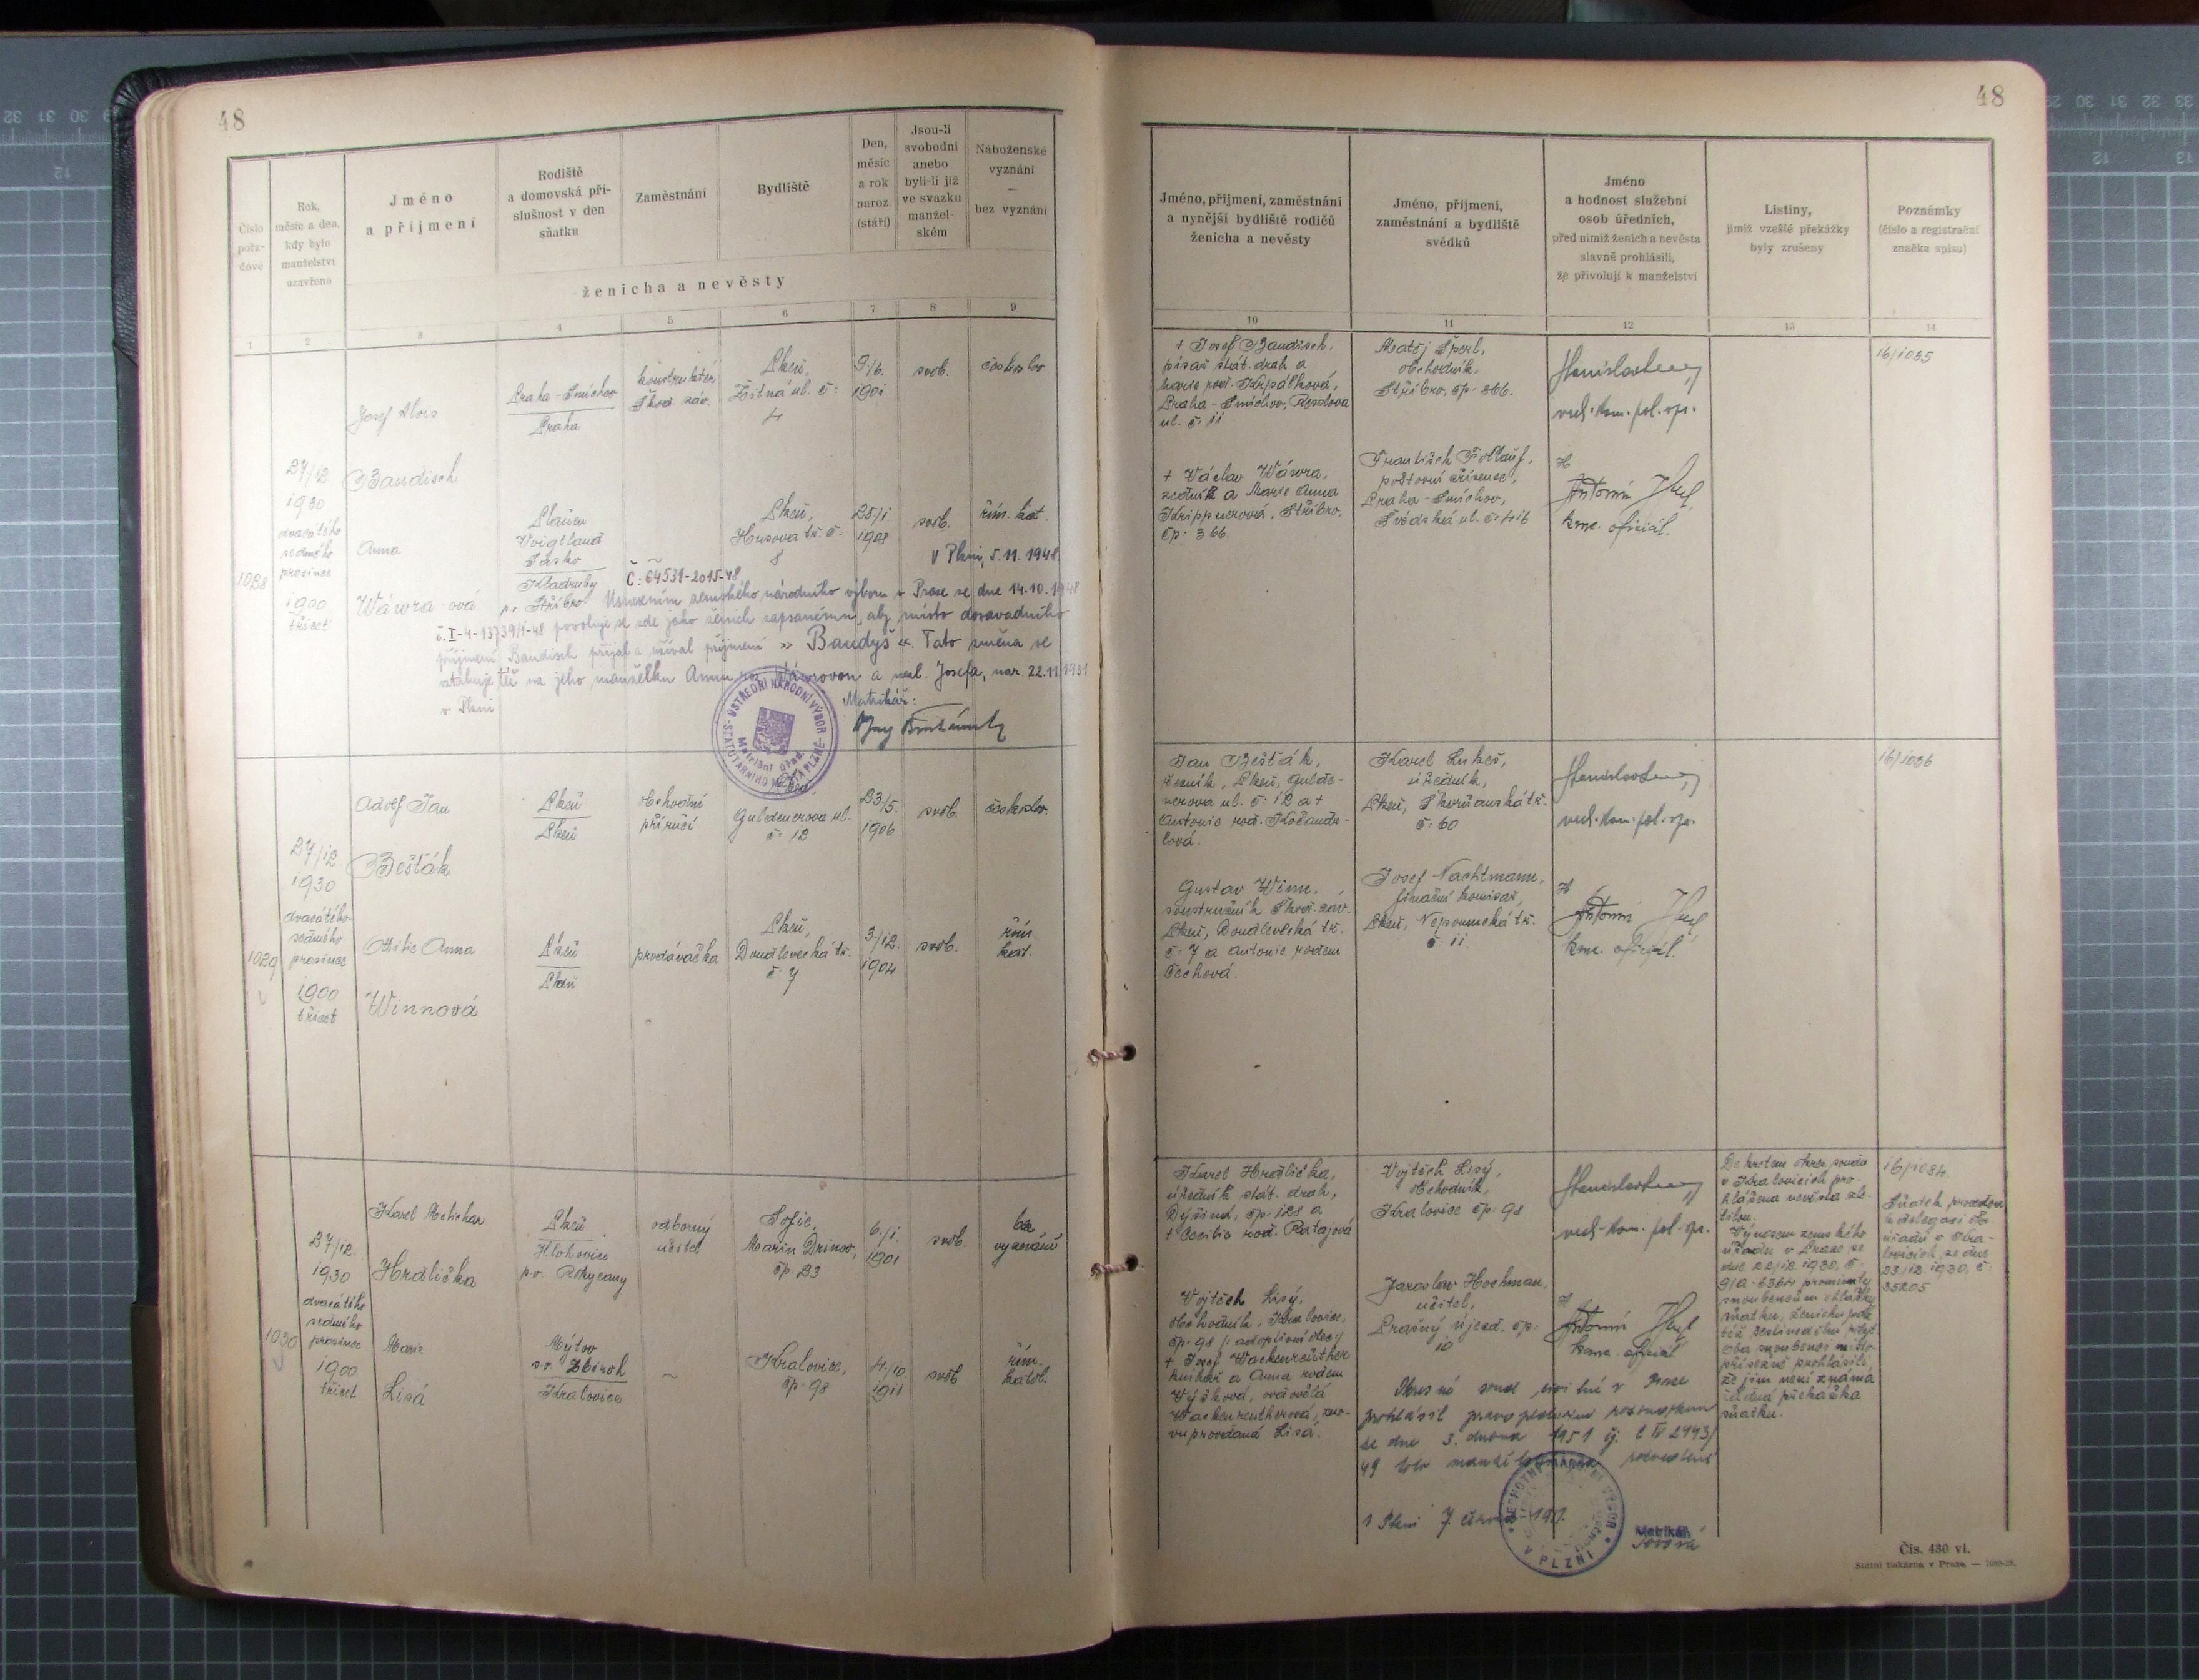 48
Číslo
pořa-
dové
Rok,
měsíc a den,
kdy bylo
manželství
uzavřeno
Jméno
a příjmení
Rodiště
a domovská pří-
slušnost v den
sňatku
Zaměstnání
Bydliště
Den,
měsíc
a rok
naroz.
(stáří)
Jsou-li
svobodni
anebo
byli-li již
ve svazku
manžel-
ském
Náboženské
vyznání
—
bez vyznání
ženicha a nevěsty
1 2 3 4 5 6 7 8 9
1028
27/12
1930
dvacátého
sedmého
prosince
1900
třicet
Josef Alois
Baudisch
Praha-Smíchov
Praha
konstruktér
Škod. záv.
Plzeň,
Žitná ul. č:
4
9/6.
1901
svob.
českoslov
Anna
Wáwra-ová
Plauen
Voigtland
Sasko
Kladruby
p. Stříbro
Plzeň,
Husova tř. č.
8
25/1.
1908
svob.
řím. kat.
V Plzni, 5.11.1948
Č: 64531-2015-48
Usnesením zemského národního výboru v Praze ze dne 14.10.1948
č. I-4-13739/1-48 povoluje se zde jako ženich zapsanému, aby místo dosavadního
příjmení Baudisch přijal a užíval příjmení » Baudyš «. Tato změna se
vztahuje též na jeho manželku Annu roz. Wáwrovou a nezl. Josefa, nar. 22.11.1931
v Plzni
Matrikář:
ÚSTŘEDNÍ NÁRODNÍ VÝBOR
STATUTÁRNÍHO MĚSTA PLZNĚ
Matriční úřad
1029
27/12
1930
dvacátého
sedmého
prosince
1900
třicet
Adolf Jan
Bešťák
Plzeň
Plzeň
obchodní
příručí
Plzeň,
Guldenerova ul.
č. 12
23/5.
1906
svob.
českoslov.
Otilie Anna
Winnová
Plzeň
Plzeň
prodavačka
Plzeň,
Doudlevecká tř.
č. 7
3/12.
1904
svob.
řím.
kat.
1030
27/12
1930
dvacátého
sedmého
prosince
1900
třicet
Karel Melichar
Hrdlička
Plzeň
Hlohovice
p.o. Rokycany
odborný
učitel
Sofie,
Marin Drinov,
čp. 23
6./1.
1901
svob.
bez
vyznání
Marie
Lisá
Mýtov
s.o. Zbiroh
Kralovice
~
Kralovice,
čp. 98
4./10.
1911
svob
řím.
katol.
48
Jméno, příjmení, zaměstnání
a nynější bydliště rodičů
ženicha a nevěsty
Jméno, příjmení,
zaměstnání a bydliště
svědků
Jméno
a hodnost služební
osob úředních,
před nimiž ženich a nevěsta
slavně prohlásili,
že přivolují k manželství
Listiny,
jimiž vzešlé překážky
byly zrušeny
Poznámky
(číslo a registrační
značka spisu)
10 11 12 13 14
+ Josef Baudisch,
písař stát. drah a
Marie roz. Krpálková,
Praha-Smíchov, Resslova
ul. č. 11
Matěj Šperl,
obchodník,
Stříbro, čp. 366.
vrch. kom. pol. spr.
16/1035
+ Václav Wáwra,
zedník a Marie Anna
Krippnerová, Stříbro,
čp. 366.
František
poštovní zřízenec,
Praha-Smíchov,
Švédská ul. č. 416
Antonín
konc. oficiál.
Jan Bešťák,
řezník, Plzeň, Gulde-
nerova ul. č. 12 a +
Antonie roz.
lová.
Karel Lukeš,
úředník,
Plzeň, Skvrňanská tř.
č. 60
vrch. kom. pol. spr.
16/1036
Gustav Winn,
soustružník Škod. záv.
Plzeň, Doudlevecká tř.
č. 7 a Antonie rodem
Čechová.
Josef Nachtmann,
finanční komisař,
Plzeň, Nepomucká tř.
č. 11.
Antonín
konc. oficiál.
Karel Hrdlička,
úředník stát. drah,
Dýšina, čp. 128 a
+ Cecilie roz. Ratajová
Vojtěch Lisý,
obchodník,
Kralovice čp. 98
vrch. kom. pol. spr.
Dekretem okres. soudu
v Kralovicích pro-
hlášena nevěsta zle-
tilou.
Výnosem zemského
úřadu v Praze ze
dne 22/12 1930, č.
9/a-6364 prominuty
snoubencům ohlášky
sňatku, ženichu podle
též šestinedělní pobyt.
Oba snoubenci místo-
přísežně prohlásili,
že jim není známa
žádná překážka
sňatku.
16/1084
Sňatek proveden
z delegace ok.
úřadu v Kra-
lovicích ze dne
23/12 1930, č.
35205
Vojtěch Lisý,
obchodník, Kralovice,
čp. 98 /: adoptivní otec :/
+ Josef Wackenreuther
kuchař a Anna rodem
Výškova, ovdovělá
Wackenreutherová, zno-
vu provdaná Lisá.
Jaroslav Hochman,
učitel,
Prašný Újezd, čp.
10
Antonín
konc. oficiál
Okresní soud civilní v Praze
prohlásil pravoplatným rozsudkem
ze dne 3. dubna 1951 čj. C IV 2443/
49 toto manželství rozvedené
V Plzni 7. června 1951.
JEDNOTNÝ
V PLZNI
Matrikář
Čís. 430 vl.
Státní tiskárna v Praze. —